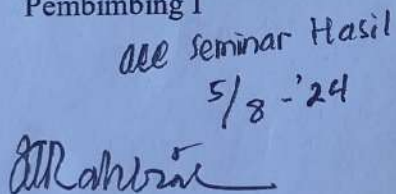 Pembimbing I
acc seminar Hasil
5/8 - '24